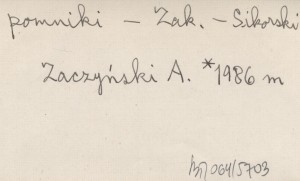 pomniki - Zak. - Sikorski
Zaczyński A. *1986 m
064/5703